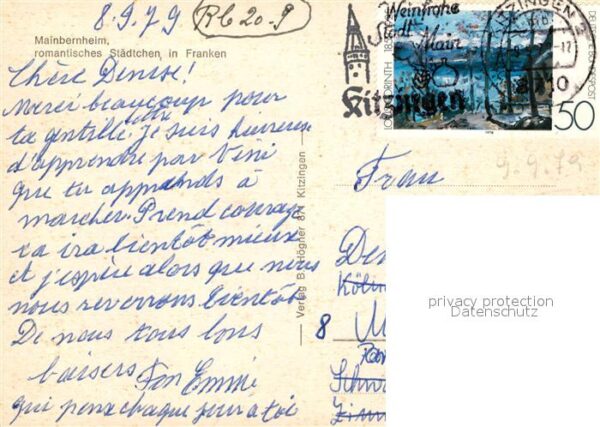 8.9.79 Rb 20.9
Mainbernheim,
romantisches Städtchen in Franken
Chère Denise!
Merci beaucoup pour
ta gentille lettre je suis heureuse
d'apprendre par Vini
que tu apprends à
marcher. Prend courage
ca ira bientôt mieux
et j'espère alors que nous
nous reverrons bientôt
De nous tous bons
baisers Ton Emmi
qui pense chaque jour a toi
Verlag B. Högner 871 Kitzingen
Weinfrohe
Stadt
Main
Kitzingen
KITZINGEN 2
8710
LOVIS CORINTH
DEUTSCHE BUNDESPOST
50
9.9.79
Frau
Den
Köln
8 M
Schw
privacy protection
Datenschutz